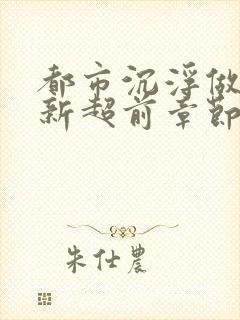 都市沉浮做
新超前章節
朱仕農